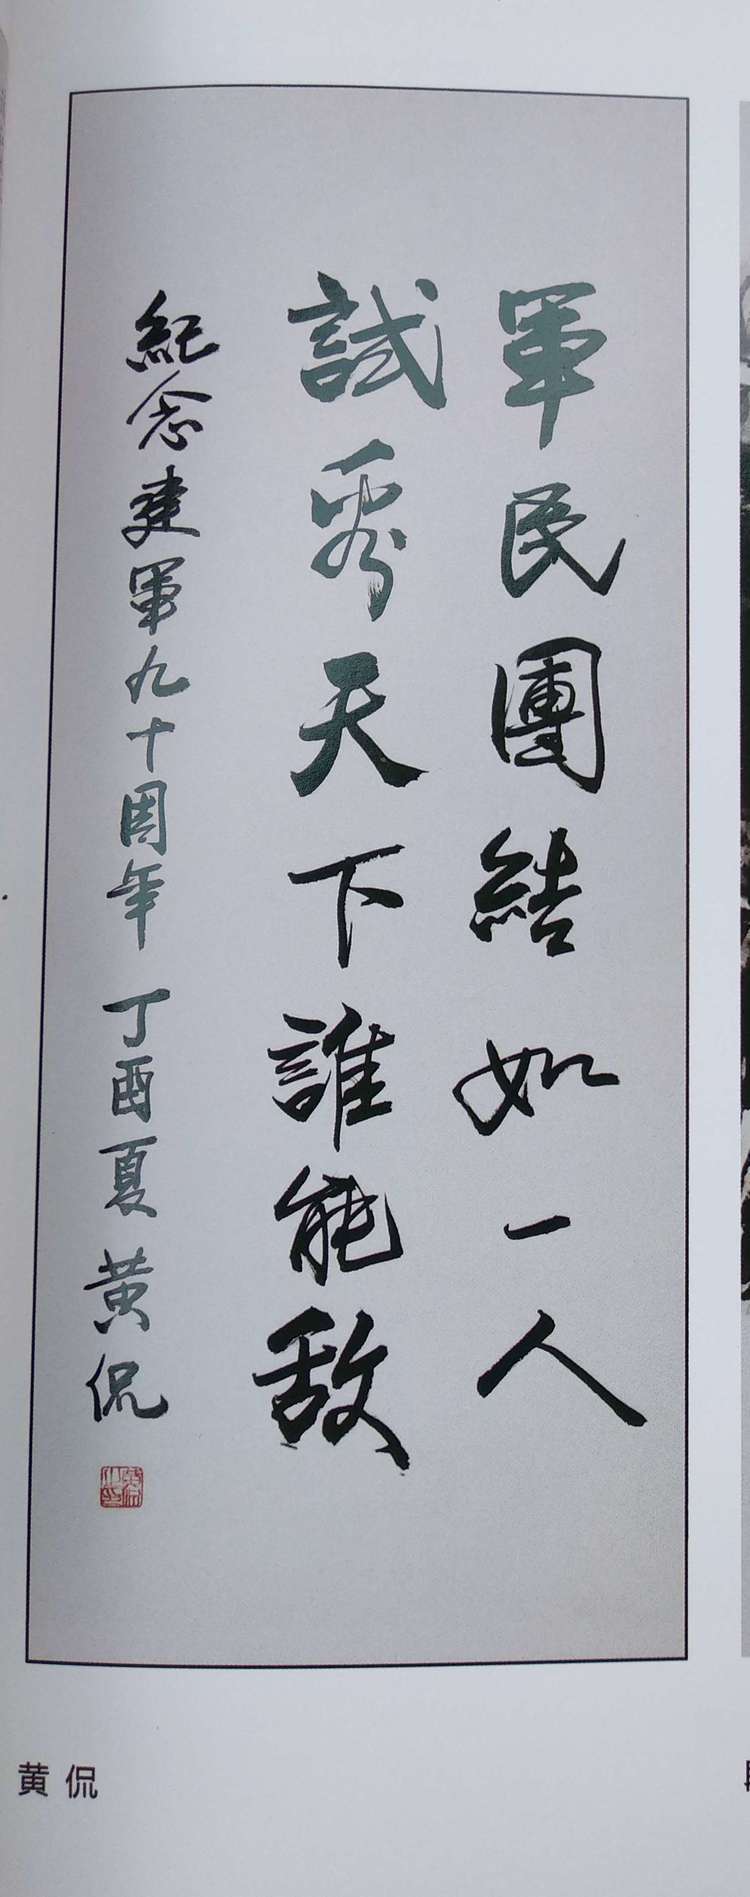 軍民團結如一人
試看天下誰能敵
紀念建軍九十周年 丁酉夏 黄侃
黄侃